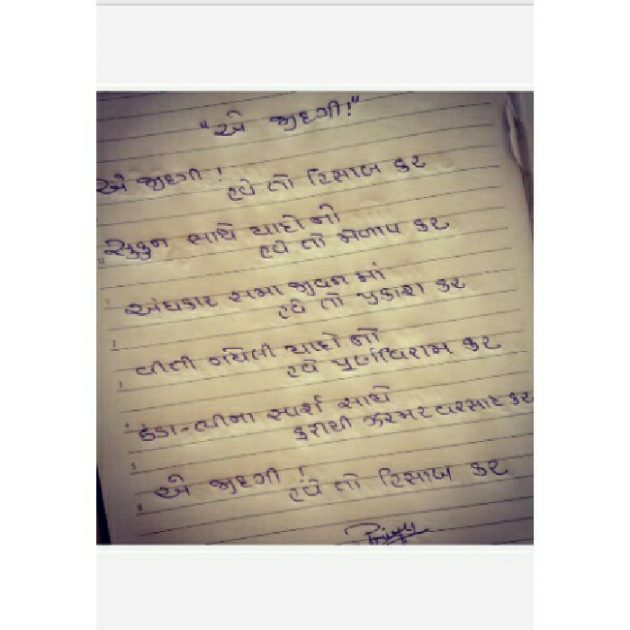 "એ જીદગી!"
એ જીદગી !
હવે તો હિસાબ કર
સુકુન સાથે યાદો નો
હવે તો મેળાપ કર
અંધકાર સમા જીવન માં
હવે તો પ્રકાશ કર
વીતી ગયેલી યાદો નો
હવે પુર્ણવિરામ કર
ઠંડા-ભીના સ્પર્શ સાથે
ફરીથી ઝરમર વરસાદ કર
એ જીદગી !
હવે તો હિસાબ કર
Priyu